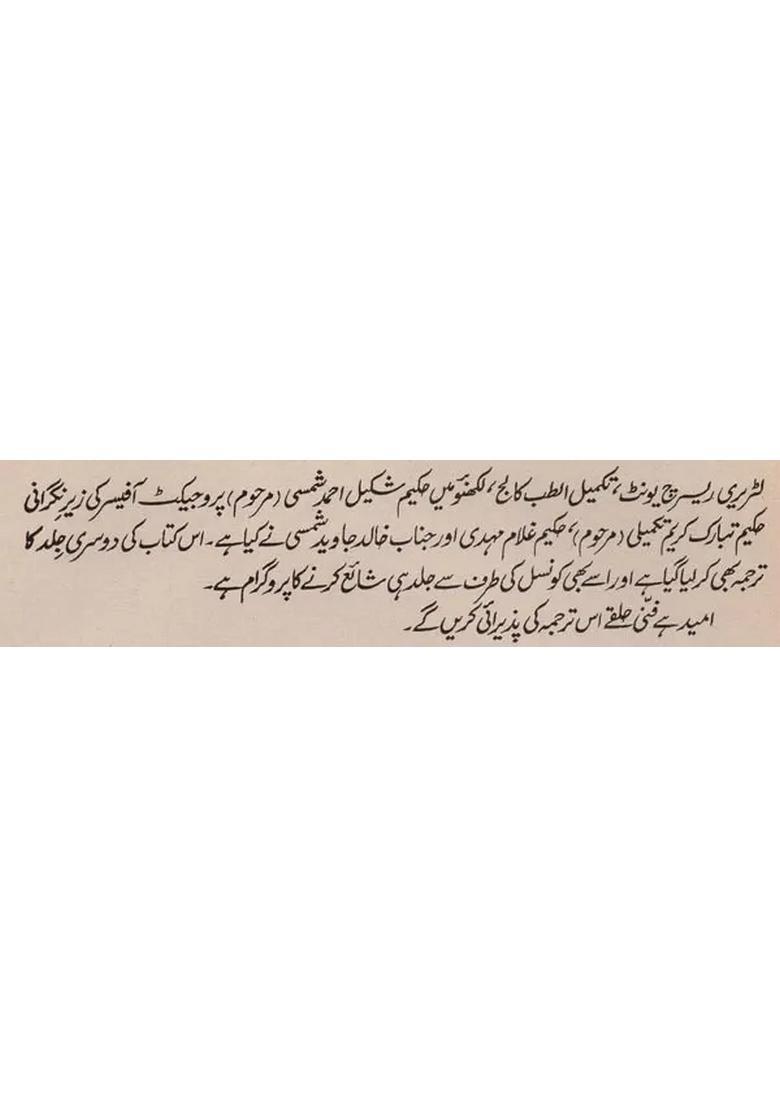 لٹریری ریسرچ یونٹ، تکمیل الطب کالج، لکھنؤ میں حکیم شکیل احمد شمسی (مرحوم) پروجیکٹ آفیسر کی زیرِ نگرانی
حکیم تبارک کریم تکمیلی (مرحوم)، حکیم غلام مہدی اور جناب خالد جاوید شمسی نے کیا ہے۔ اس کتاب کی دوسری جلد کا
ترجمہ بھی کر لیا گیا ہے اور اسے بھی کونسل کی طرف سے جلد ہی شائع کرنے کا پروگرام ہے۔
امید ہے فنّی حلقے اس ترجمہ کی پذیرائی کریں گے۔